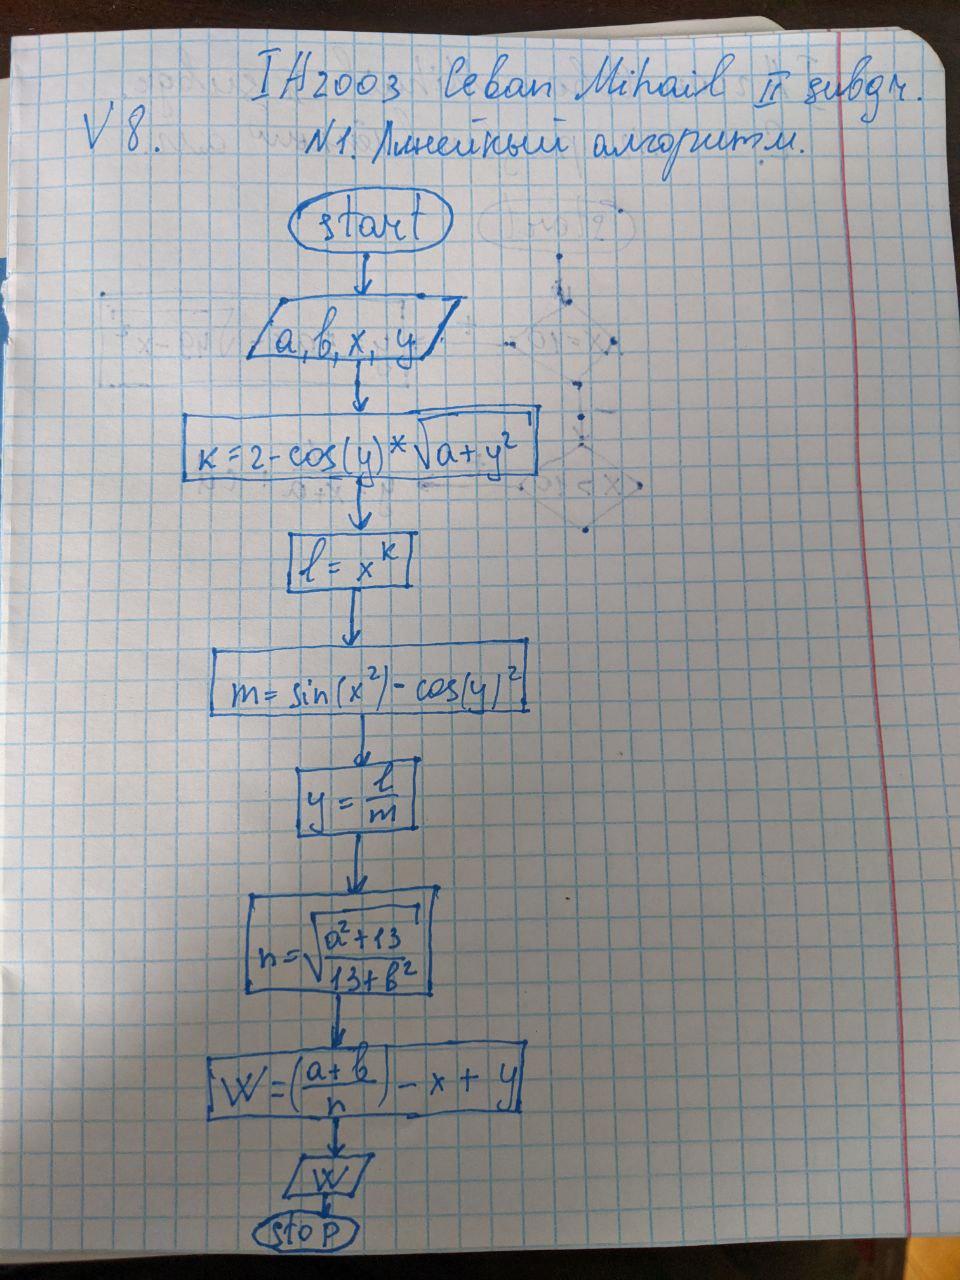 IA2003 Ceban Mihail II
V 8. N1. Линейный алгоритм.
start
a, b, x, y
k = 2 - cos(y) * √a + y²
l = x^k
m = sin(x²) - cos(y)²
y = l/m
n = √(a² + 13)/(13 + b²)
W = ((a + b)/n) - x + y
W
stop